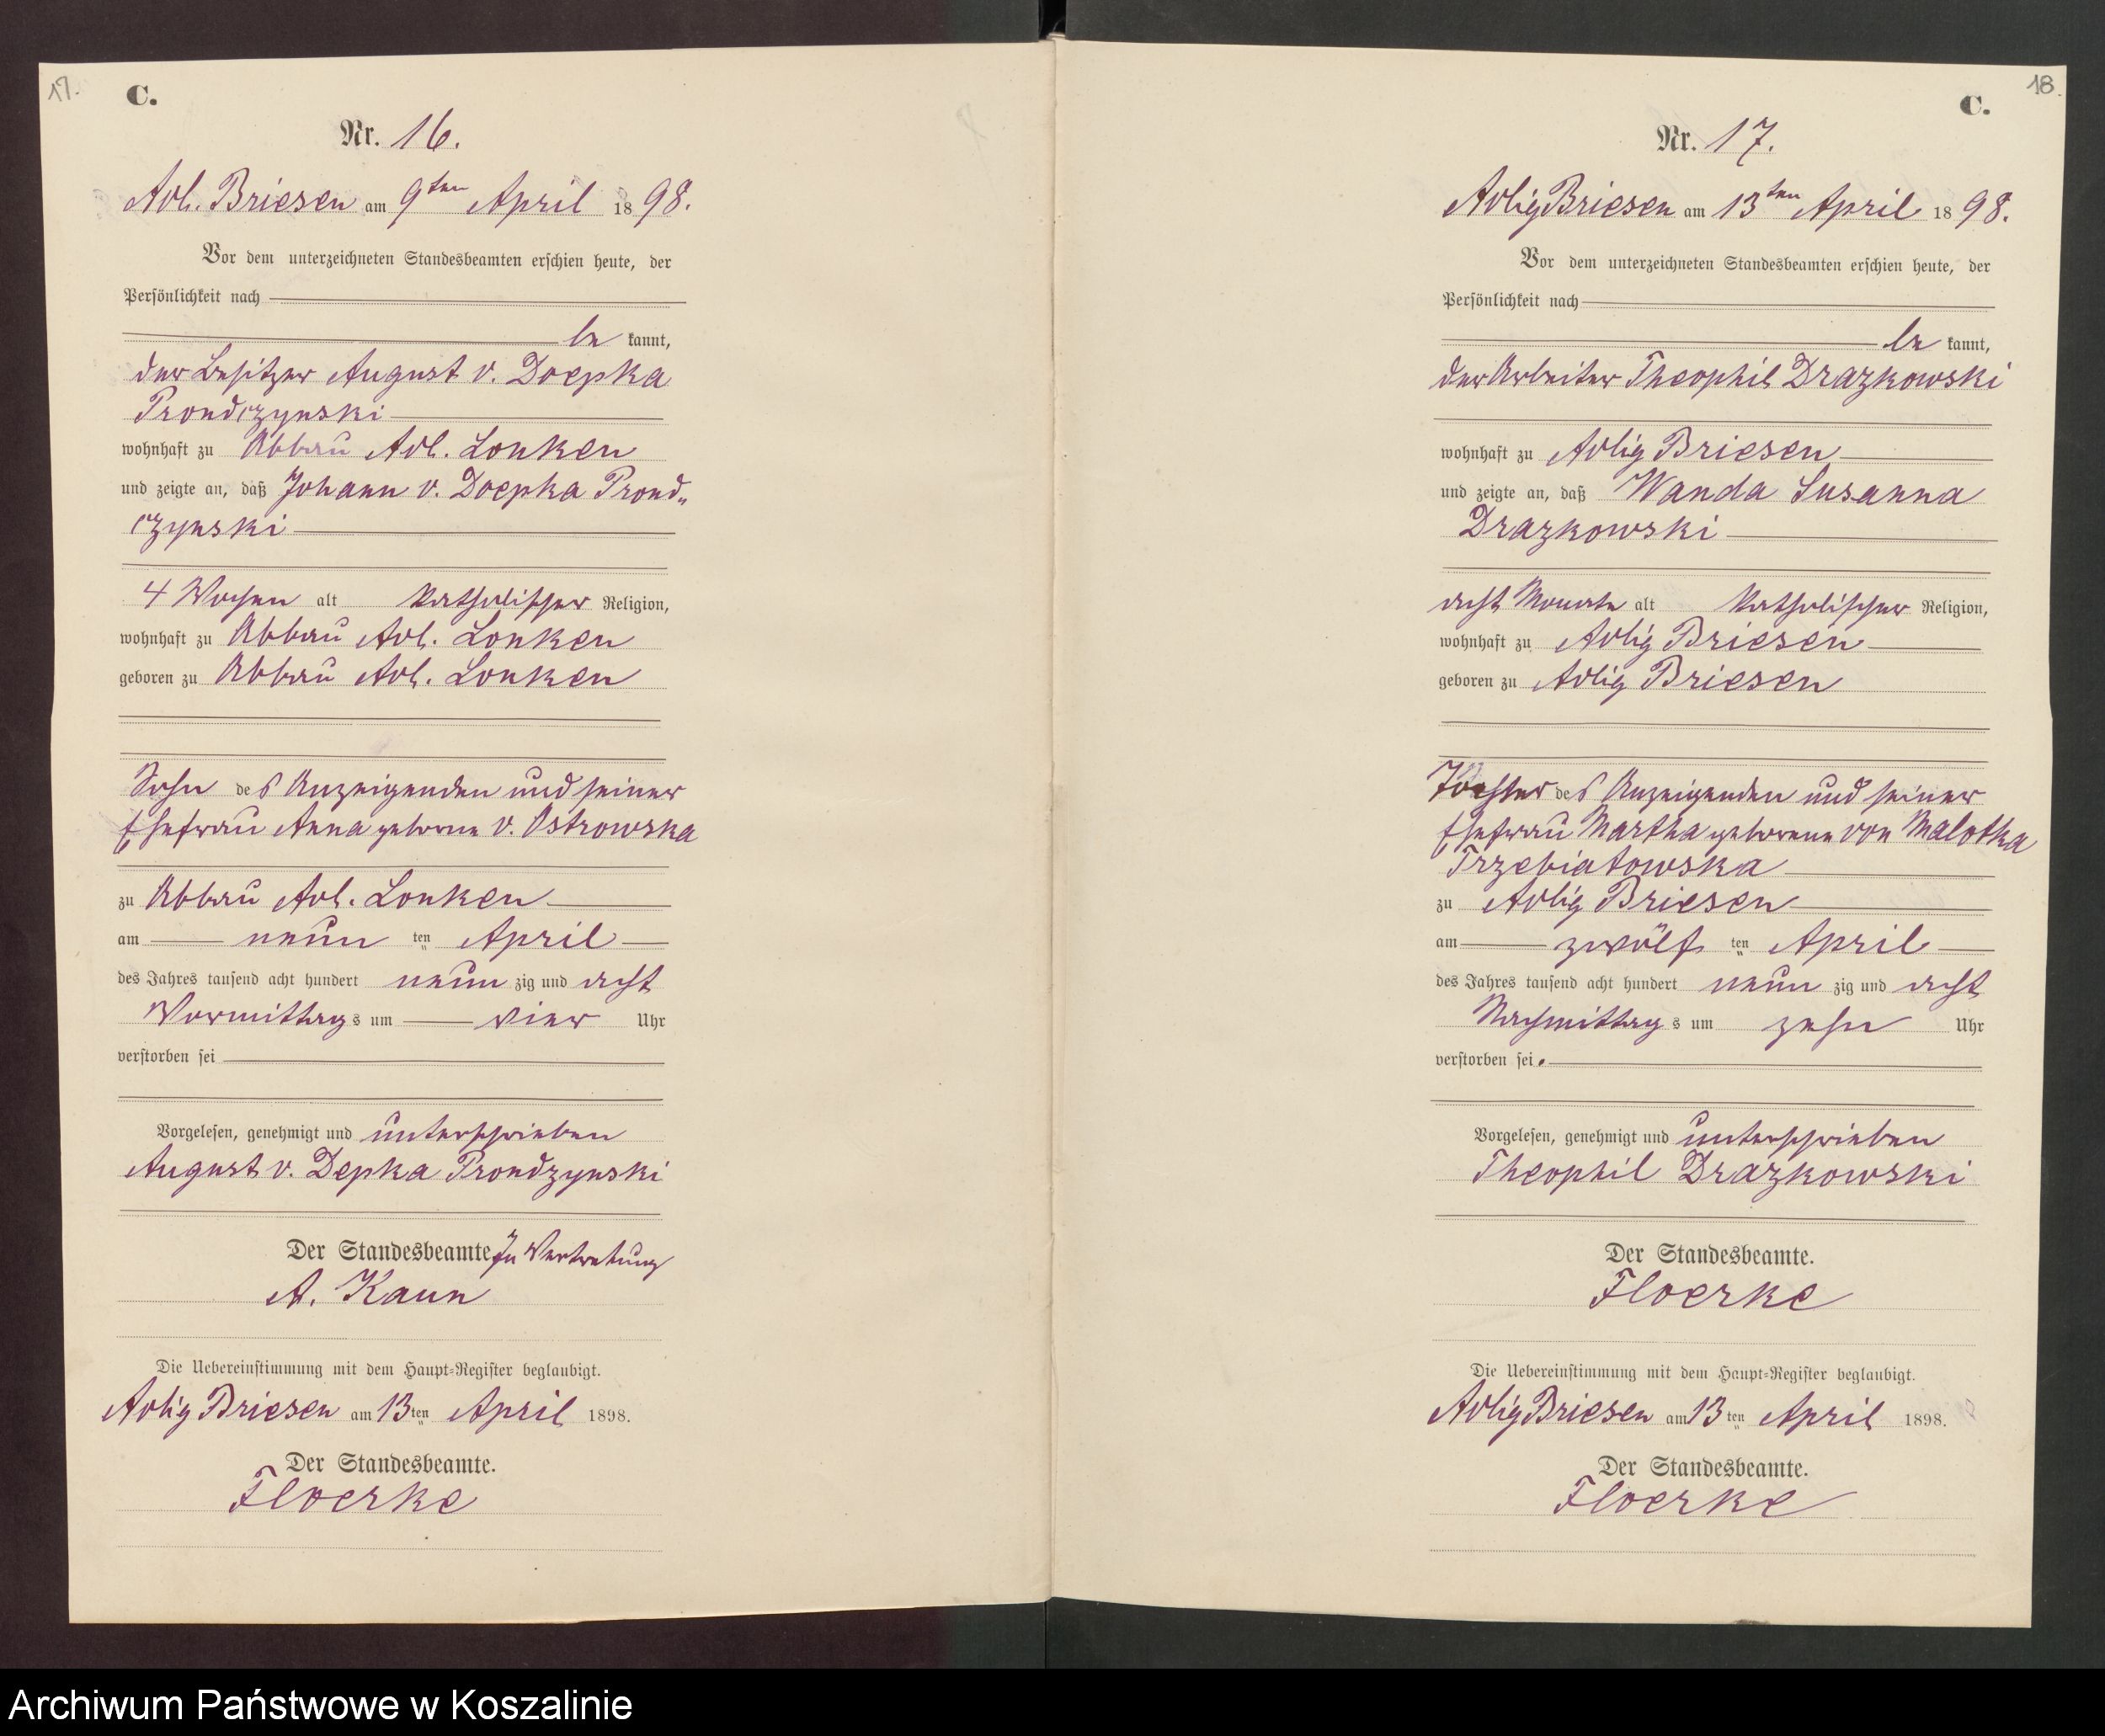 17.
C.
Nr. 16.
Adl. Briesen am 9ten April 1898.
Vor dem unterzeichneten Standesbeamten erschien heute, der
Persönlichkeit nach
be kannt,
der Besitzer August v. Doepka
Prondczynski
wohnhaft zu Abbau Adl. Lonken
und zeigte an, daß Johann v. Doepka Prond„
czynski
4 Wochen alt katholischer Religion,
wohnhaft zu Abbau Adl. Lonken
geboren zu Abbau Adl. Lonken
Sohn des Anzeigenden und seiner
Ehefrau Anna geborne v. Ostrowska
zu Abbau Adl. Lonken
am neun ten April
des Jahres tausend acht hundert neun zig und acht
Vormittags um vier Uhr
verstorben sei
Vorgelesen, genehmigt und unterschrieben
August v. Depka Prondzynski
Der Standesbeamte In Vertretung
A. Kaun
Die Uebereinstimmung mit dem Haupt-Register beglaubigt.
Adlig Briesen am 13ten April 1898.
Der Standesbeamte.
Floerke
18.
C.
Nr. 17.
Adlig Briesen am 13ten April 1898.
Vor dem unterzeichneten Standesbeamten erschien heute, der
Persönlichkeit nach
be kannt,
der Arbeiter Theophil Drazkowski
wohnhaft zu Adlig Briesen
und zeigte an, daß Wanda Susanna
Drazkowski
acht Monate alt katholischer Religion,
wohnhaft zu Adlig Briesen
geboren zu Adlig Briesen
Tochter des Anzeigenden und seiner
Ehefrau Martha geborenen von Malotka
Trzebiatowska
zu Adlig Briesen
am zwölf ten April
des Jahres tausend acht hundert neun zig und acht
Nachmittags um zehn Uhr
verstorben sei.
Vorgelesen, genehmigt und unterschrieben
Theophil Drazkowski
Der Standesbeamte.
Floerke
Die Uebereinstimmung mit dem Haupt-Register beglaubigt.
Adlig Briesen am 13ten April 1898.
Der Standesbeamte.
Floerke
Archiwum Państwowe w Koszalinie